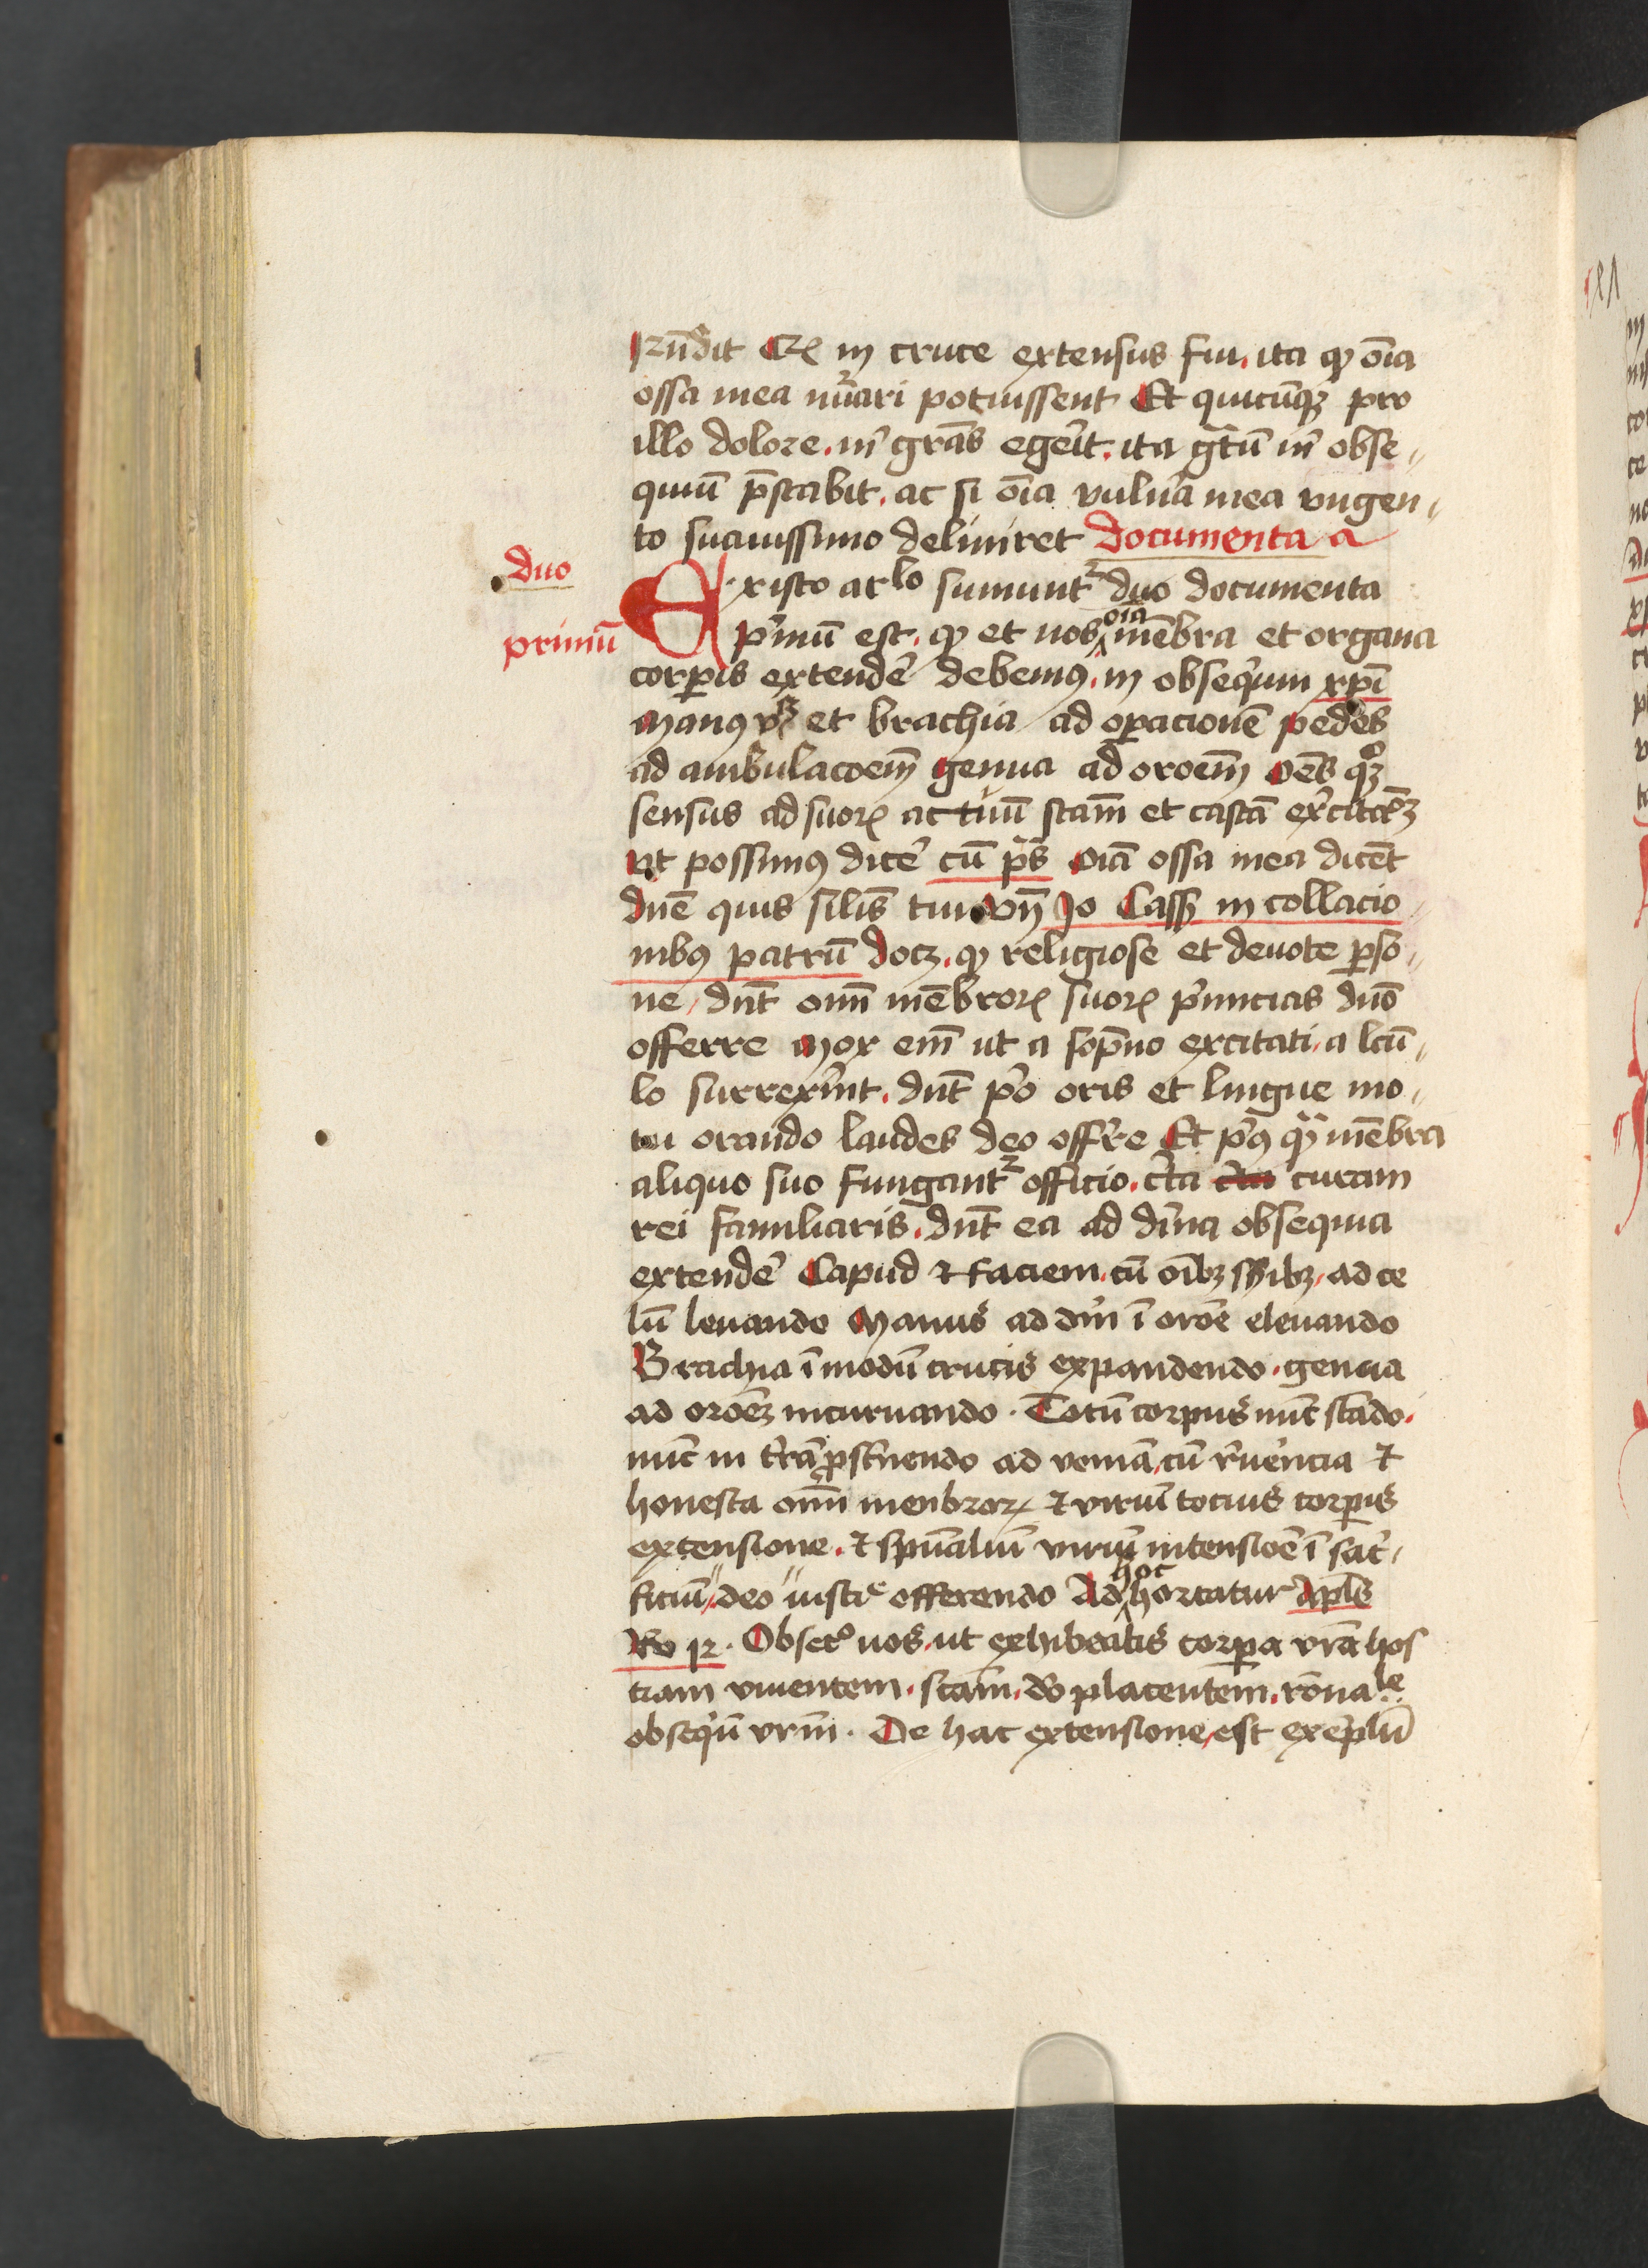 Rn̄dit Cꝝ in cruce extensus fui. ita ꝙ oīa
ossa mea nūari potuissent Et quicūqꝫ pro
illo dolore. m̄ grās egeīt. ita gr̄tū m̄ obse
quiū p̄stabit. ac si oīa vuln̄a mea vngen
to suauissimo deliniret documenta a
duo
Existo arlo sumuntr duo documenta
primū
p̄mū est. ꝙ et nos oīa mēbra et organa
corꝑis extendē debemꝰ. in obseq̄um xp̄i
Manꝰ et brachia ad oꝑacionē pedes
ad ambulacōem̄ genua ad orōem̄ Oēs qꝫ
sensus ad suoꝝ actuū scām et castā
ut possimꝰ dicē cū p̄s Oīa ossa mea dicēt
dn̄e quis sil̄is tui Vn̄ Jo Cass in collacio
nibꝰ patrū docꝫ. ꝙ religiose et deuote ꝑso
ne, dn̄t om̄ mēbroꝝ suoꝝ p̄micias dn̄o
offerre Mox em̄ ut a sopno excitati, a lcū
lo surrex̄int. dn̄t p̄o oris et lingue mo
tu orando laudes deo off̄re Et p̄ꝰ qͣ mēbra
aliquo suo fungantr officio. c̄ta curam
rei familiaris. dn̄t ea ad diīna obsequia
extendē Capud ⁊ faciem. cū oībꝫ ad ce
lū leuando Manus ad dn̄m ī orōe eleuando
Brachia ī modū crucis expandendo. genua
ad orōeꝫ incuruando. Totū corpus nūc stādo.
nūc in t̄rā ꝓst̄nendo ad veniā, cū r̄uerncia ⁊
honesta om̄ menbroꝝ ⁊ viriū tocius corꝑis
extensione. ⁊ spūaliū viriū intensiōe ī sac̄i
ficiū deo iusticie offerendo Ad hoc hortatur Apl̄s
Ro 12. Obsecº uos. ut exhibeatis corꝑa vrā hos
tiam viuentem. scām. do placentem. rōnale
obseq̄ū vr̄m. De hac extensione, est exēplū